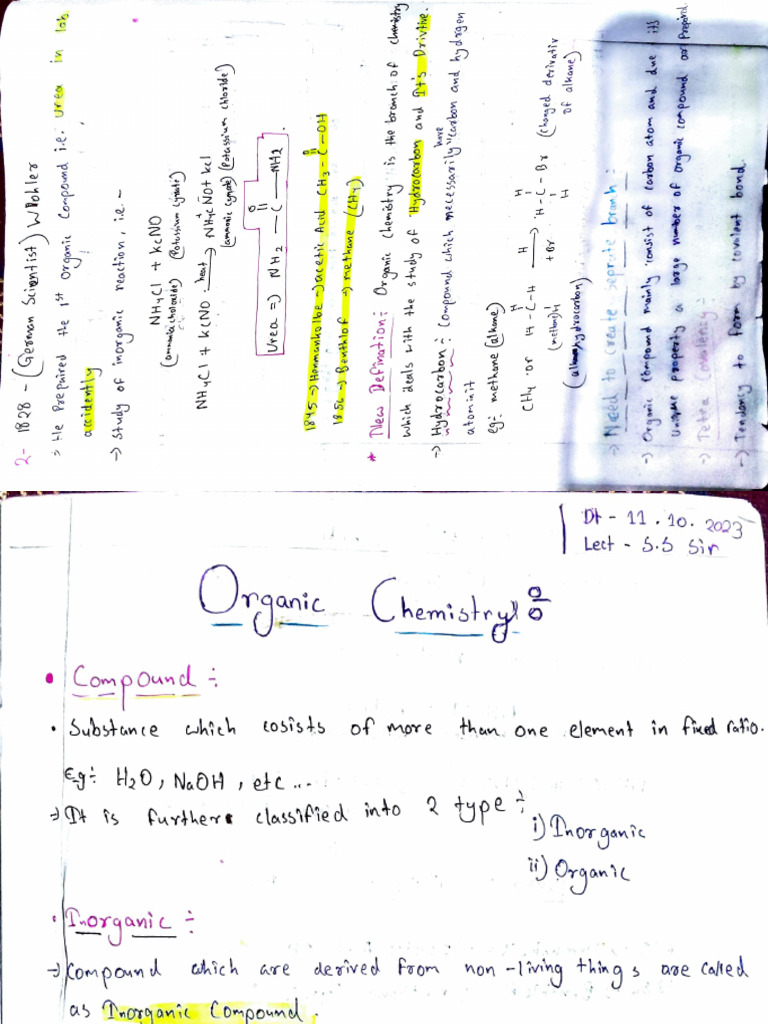 2- 1828 - (German Scientist) Wöhler
→ He Prepaired the 1st Organic Compound i.e. urea in lab
accidently
→ Study of inorganic reaction, i.e. -
NH4Cl + KCNO
(Potassium cynate)
NH4Cl + KCNO heat → NH4CNO + KCl
(ammonic cynate) (Potassium chloride)
Urea => NH2 - C - NH2
O
1845 → Hermankolbe → acetic Acid CH3 - C - OH
O
1856 → Benthlof → methane (CH4)
* New Defination: Organic chemistry is the branch of chemistry
which deals with the study of Hydrocarbon and It's Drivtive.
→ Hydrocarbon: Compound which necessarily have carbon and hydrgen
atom in it
eg: methane (alkane)
CH4 or H - C - H → H - C - Br (changed derivativ
of alkane)
+ Br
→ Need to create seprate branch:
→ Organic Compound mainly consist of carbon atom and due its
unique property a large number of organic compound are prepaired.
→ Tetra Covalency:
→ Tendancy to form by covalent bond.
Dt - 11.10.2023
Lect - S.S Sir
Organic Chemistry
• Compound ÷
• Substance which cosists of more than one element in fixed ratio.
E.g÷ H2O, NaOH, etc ...
→ It is further classified into 2 type ÷
i) Inorganic
ii) Organic
• Inorganic ÷
→ Compound which are derived from non-living things are called
as Inorganic Compound.